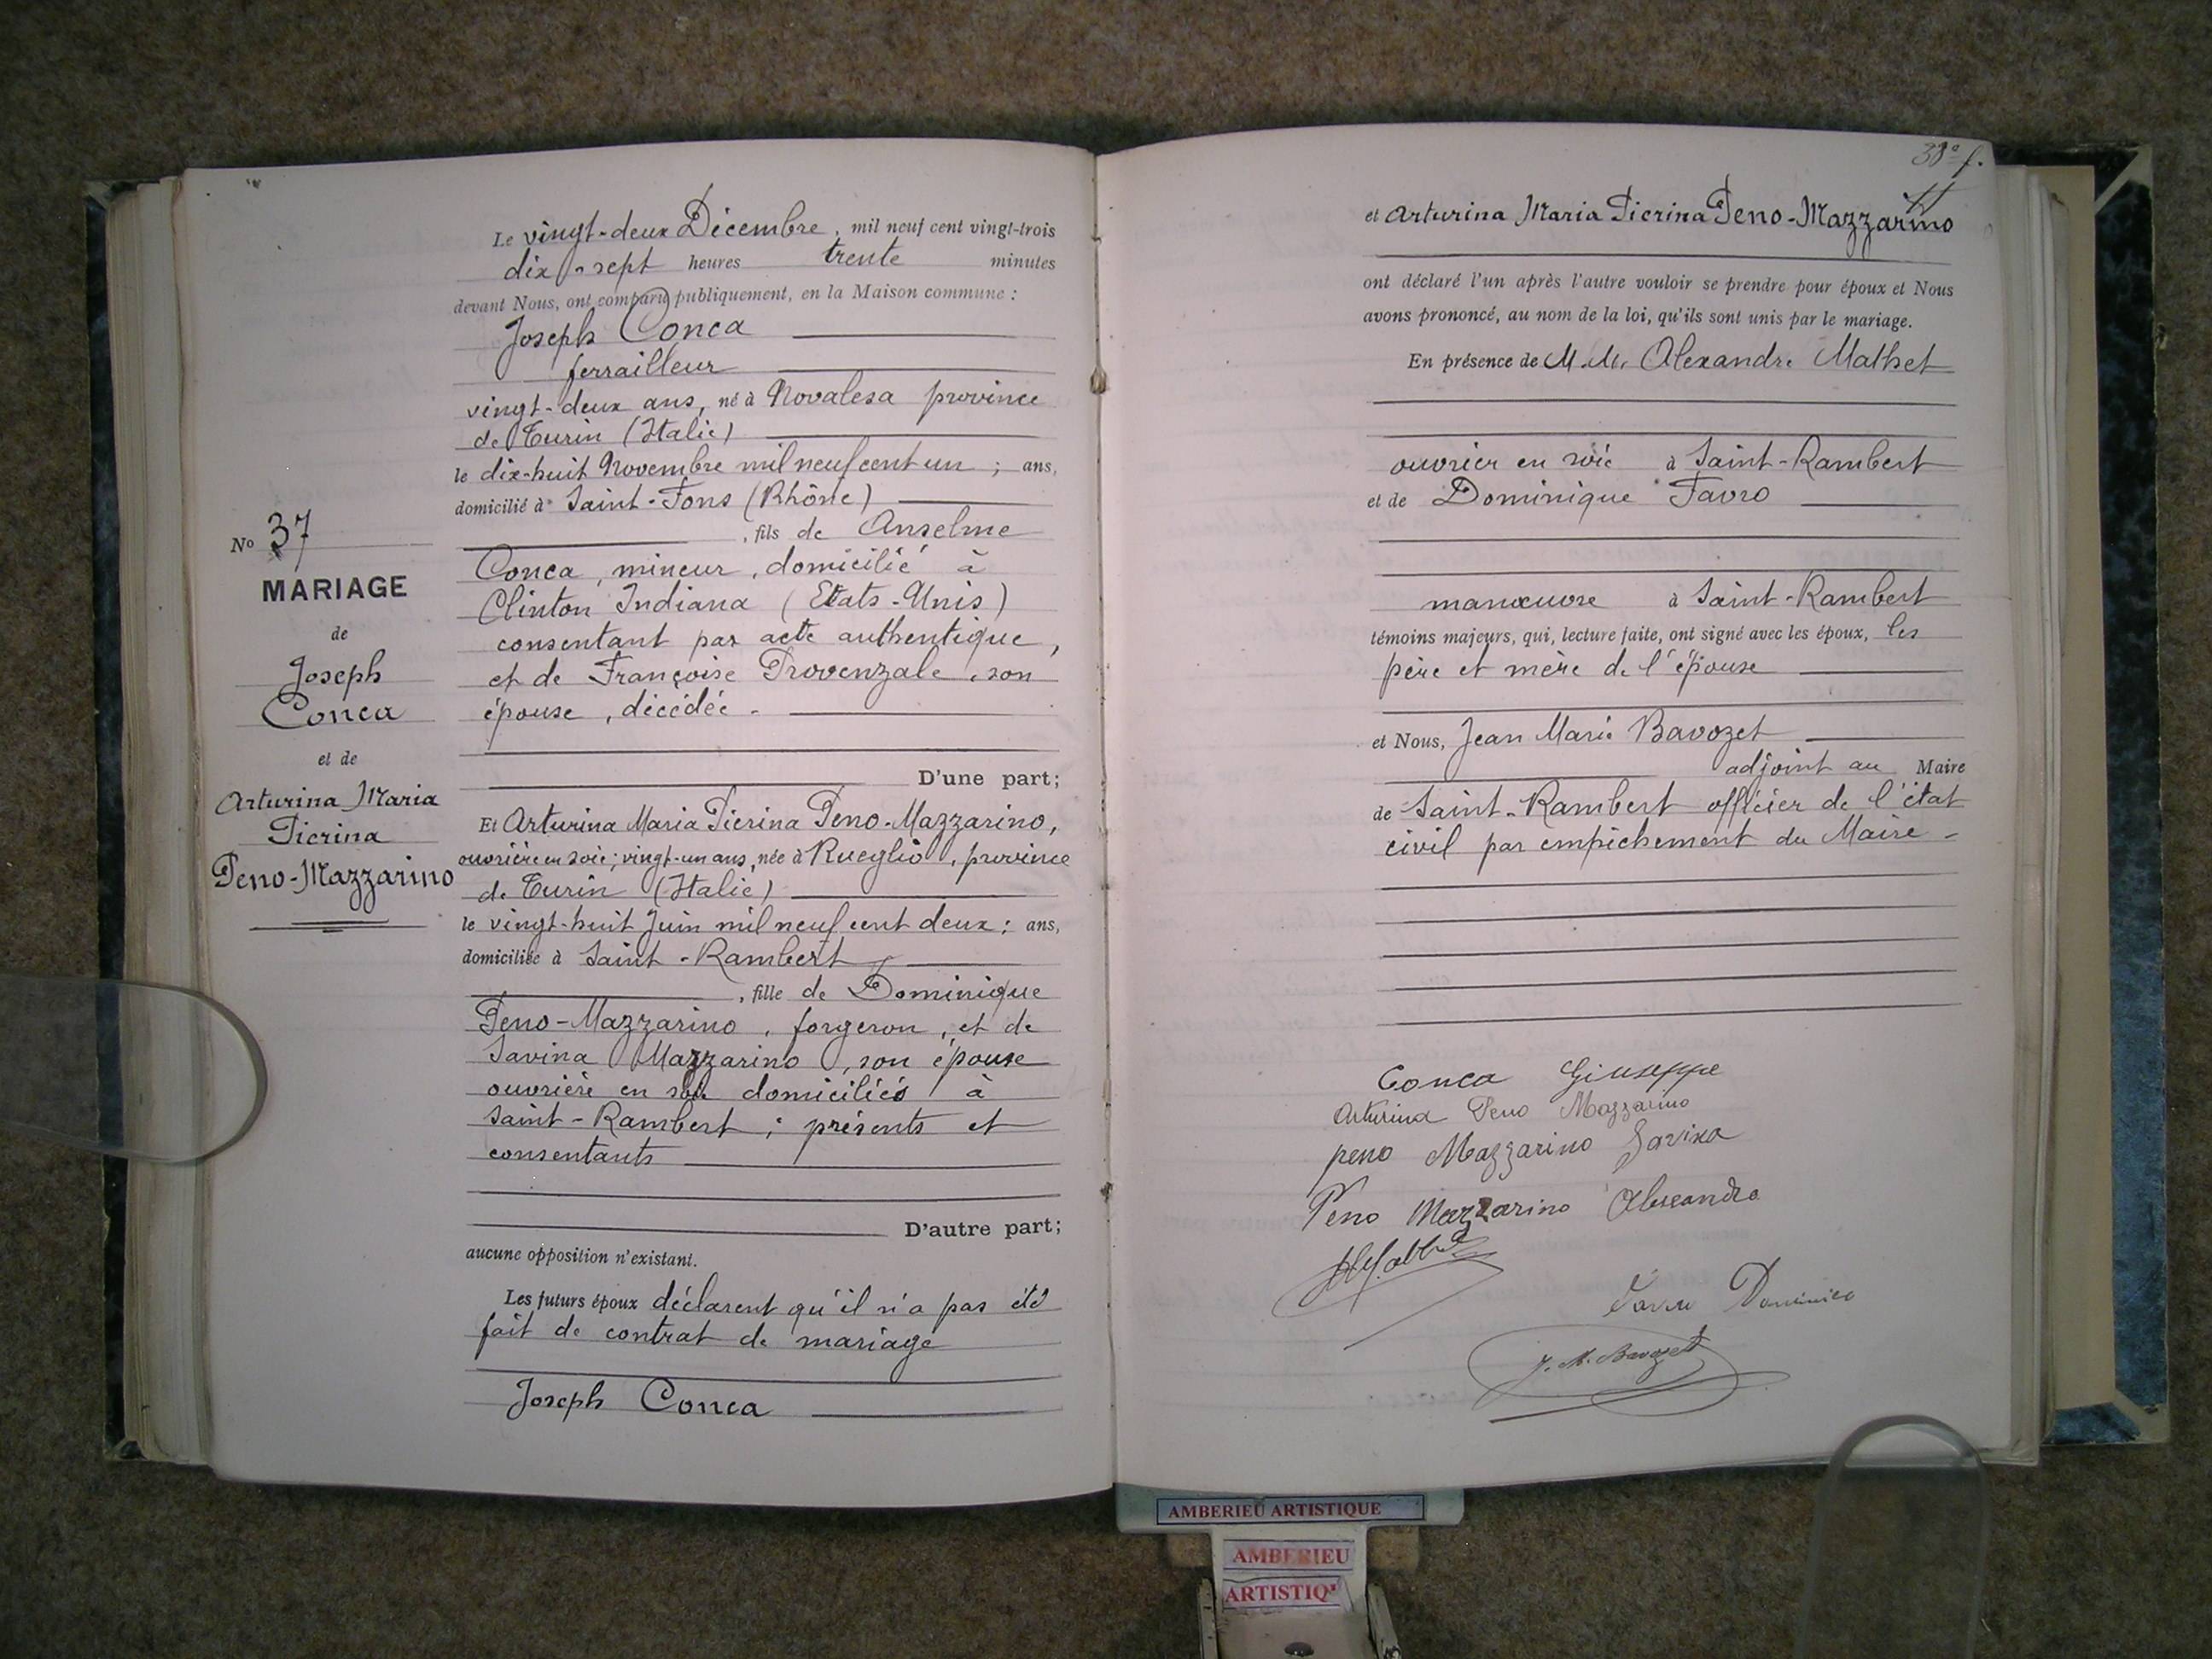 No 37
MARIAGE
de
Joseph
Conca
et de
Arturina Maria
Pierina
Peno-Mazzarino
Le vingt-deux Décembre, mil neuf cent vingt-trois
dix-sept heures trente minutes
devant Nous, ont comparu publiquement, en la Maison commune :
Joseph Conca
ferrailleur
vingt-deux ans, né à Novalesa province
de Turin (Italie)
le dix-huit Novembre mil neuf cent un ; ans,
domicilié à Saint-Fons (Rhône)
, fils de Anselme
Conca, mineur, domicilié à
Clinton Indiana (Etats-Unis)
consentant par acte authentique,
et de Françoise Provenzale, son
épouse, décédée.
D'une part;
Et Arturina Maria Pierina Peno-Mazzarino,
ouvrière en soie; vingt-un ans, née à Rueglio, province
de Turin (Italie)
le vingt-huit Juin mil neuf cent deux; ans,
domiciliée à Saint-Rambert
, fille de Dominique
Peno-Mazzarino, forgeron, et de
Savina Mazzarino, son épouse
ouvrière en soie domiciliés à
Saint-Rambert; présents et
consentants
D'autre part;
aucune opposition n'existant.
Les futurs époux déclarent qu'il n'a pas été
fait de contrat de mariage
Joseph Conca
38e f.
et Arturina Maria Pierina Peno-Mazzarino
ont déclaré l'un après l'autre vouloir se prendre pour époux et Nous
avons prononcé, au nom de la loi, qu'ils sont unis par le mariage.
En présence de M.M. Alexandre Mathet
ouvrier en soie à Saint-Rambert
et de Dominique Favro
manœuvre à Saint-Rambert
témoins majeurs, qui, lecture faite, ont signé avec les époux, les
père et mère de l'épouse
et Nous, Jean Marie Bavozet
adjoint au Maire
de Saint-Rambert officier de l'état
civil par empêchement du Maire -
Conca Giuseppe
Arturina Peno Mazzarino
peno Mazzarino Savina
Peno Mazzarino
Dominico
J. M. Bavozet
AMBERIEU ARTISTIQUE
AMBERIEU
ARTISTIQ